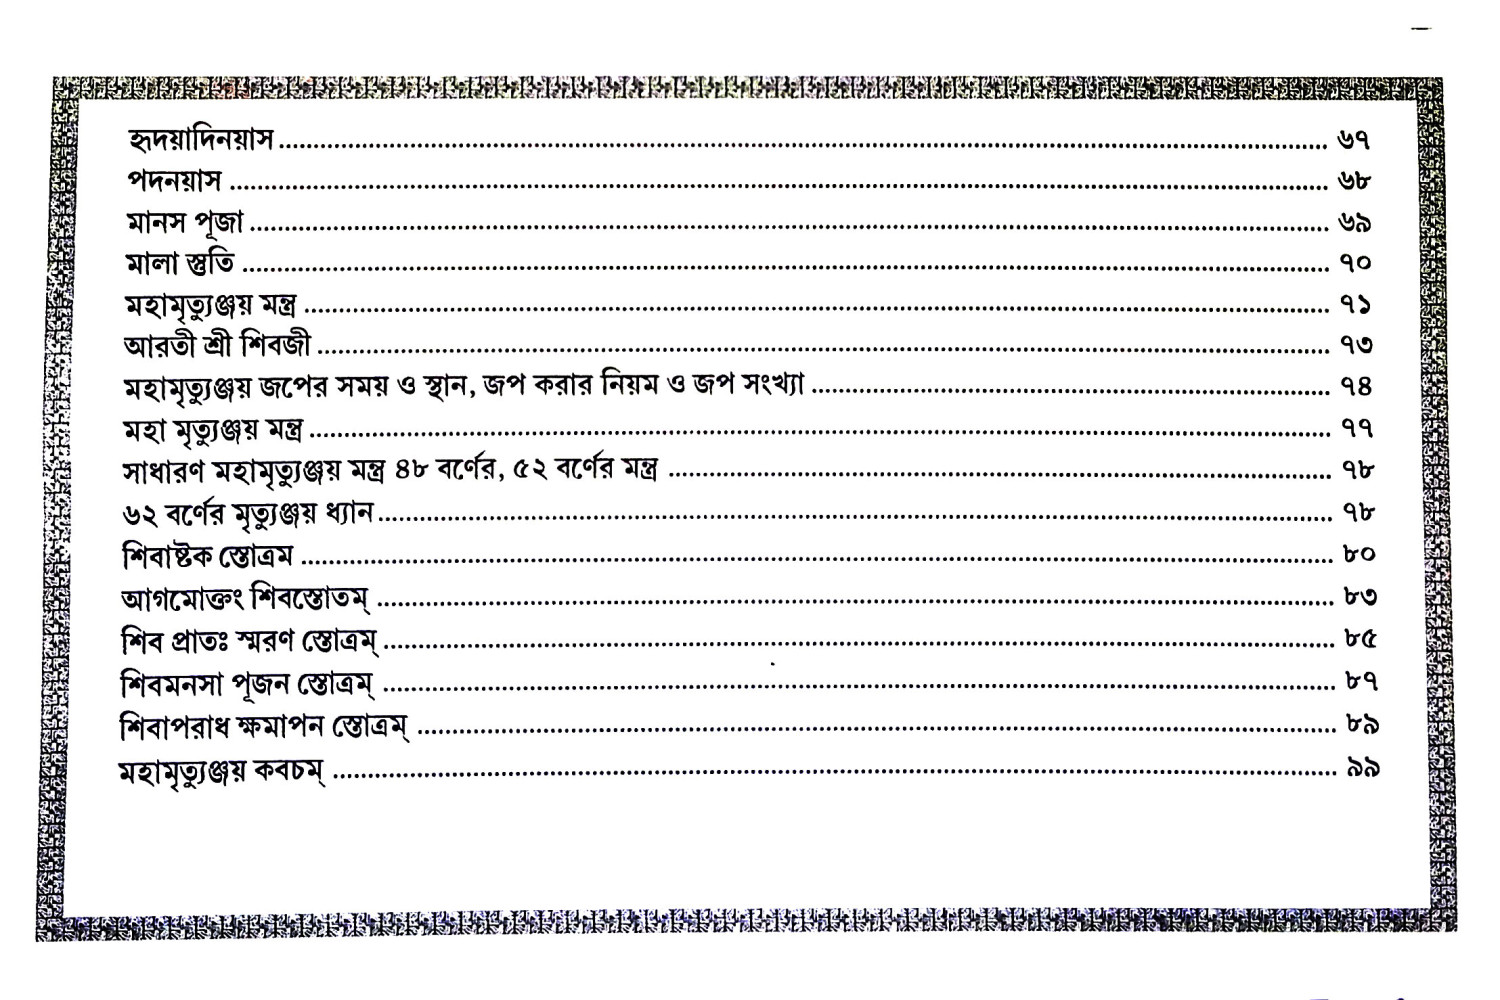 হৃদয়াদিনয়াস ........ ৬৭
পদনয়াস ........ ৬৮
মানস পূজা ........ ৬৯
মালা স্তুতি ........ ৭০
মহামৃত্যুঞ্জয় মন্ত্র ........ ৭১
আরতী শ্রী শিবজী ........ ৭৩
মহামৃত্যুঞ্জয় জপের সময় ও স্থান, জপ করার নিয়ম ও জপ সংখ্যা ........ ৭৪
মহা মৃত্যুঞ্জয় মন্ত্র ........ ৭৭
সাধারণ মহামৃত্যুঞ্জয় মন্ত্র ৪৮ বর্ণের, ৫২ বর্ণের মন্ত্র ........ ৭৮
৬২ বর্ণের মৃত্যুঞ্জয় ধ্যান ........ ৭৮
শিবাষ্টক স্তোত্রম ........ ৮০
আগমোক্তং শিবস্তোতম্ ........ ৮৩
শিব প্রাতঃ স্মরণ স্তোত্রম্ ........ ৮৫
শিবমনসা পূজন স্তোত্রম্ ........ ৮৭
শিবাপরাধ ক্ষমাপন স্তোত্রম্ ........ ৮৯
মহামৃত্যুঞ্জয় কবচম্ ........ ৯৯